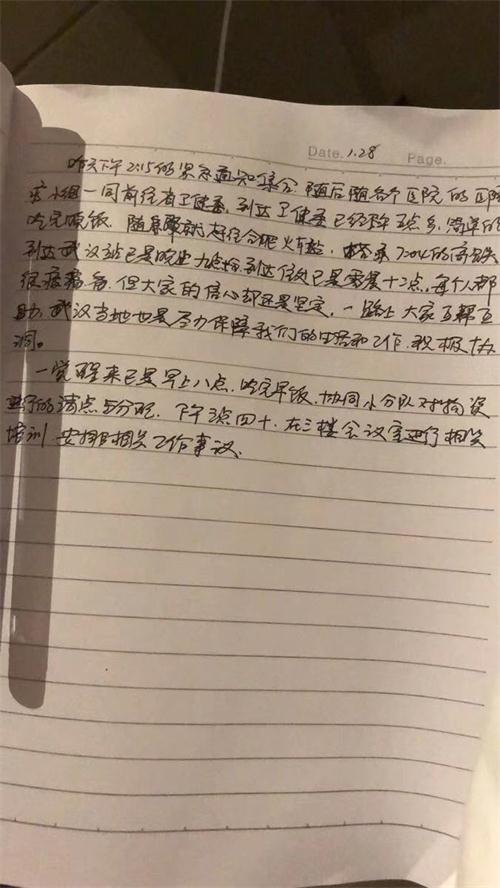 Date. 1.28 Page.
昨天下午2:15的紧急通知集合,随后随各个医院的医
小组一同前往省卫健委,到达卫健委已经将五点多,简单的
吃完顿饭,随意 就赶往合肥火车站,的高铁
到达武汉站已是晚上九点,到达住处已是零晨十二点,每个人都
很疲惫,但大家的信心却还是坚定,一路上大家互帮互
助,武汉当地也是尽力保障我们的生活和工作,积极
洞。
一觉醒来已是早上八点,吃完早饭,协同小分队对物资
进行的清点与分配,下午 四十,在三楼会议室进行相关
培训,安排相关工作事议.